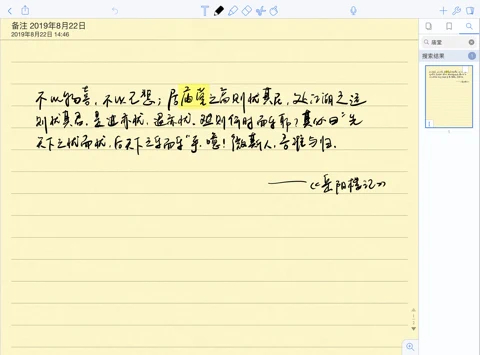 备注 2019年8月22日
2019年8月22日 14:46
不以物喜，不以己悲；居庙堂之高则忧其民，处江湖之远
则忧其君，是进亦忧，退亦忧，然则何时而乐耶？其必曰“先
天下之忧而忧，后天下之乐而乐”乎。噫！微斯人，吾谁与归。
——《岳阳楼记》
庙堂
搜索结果
1